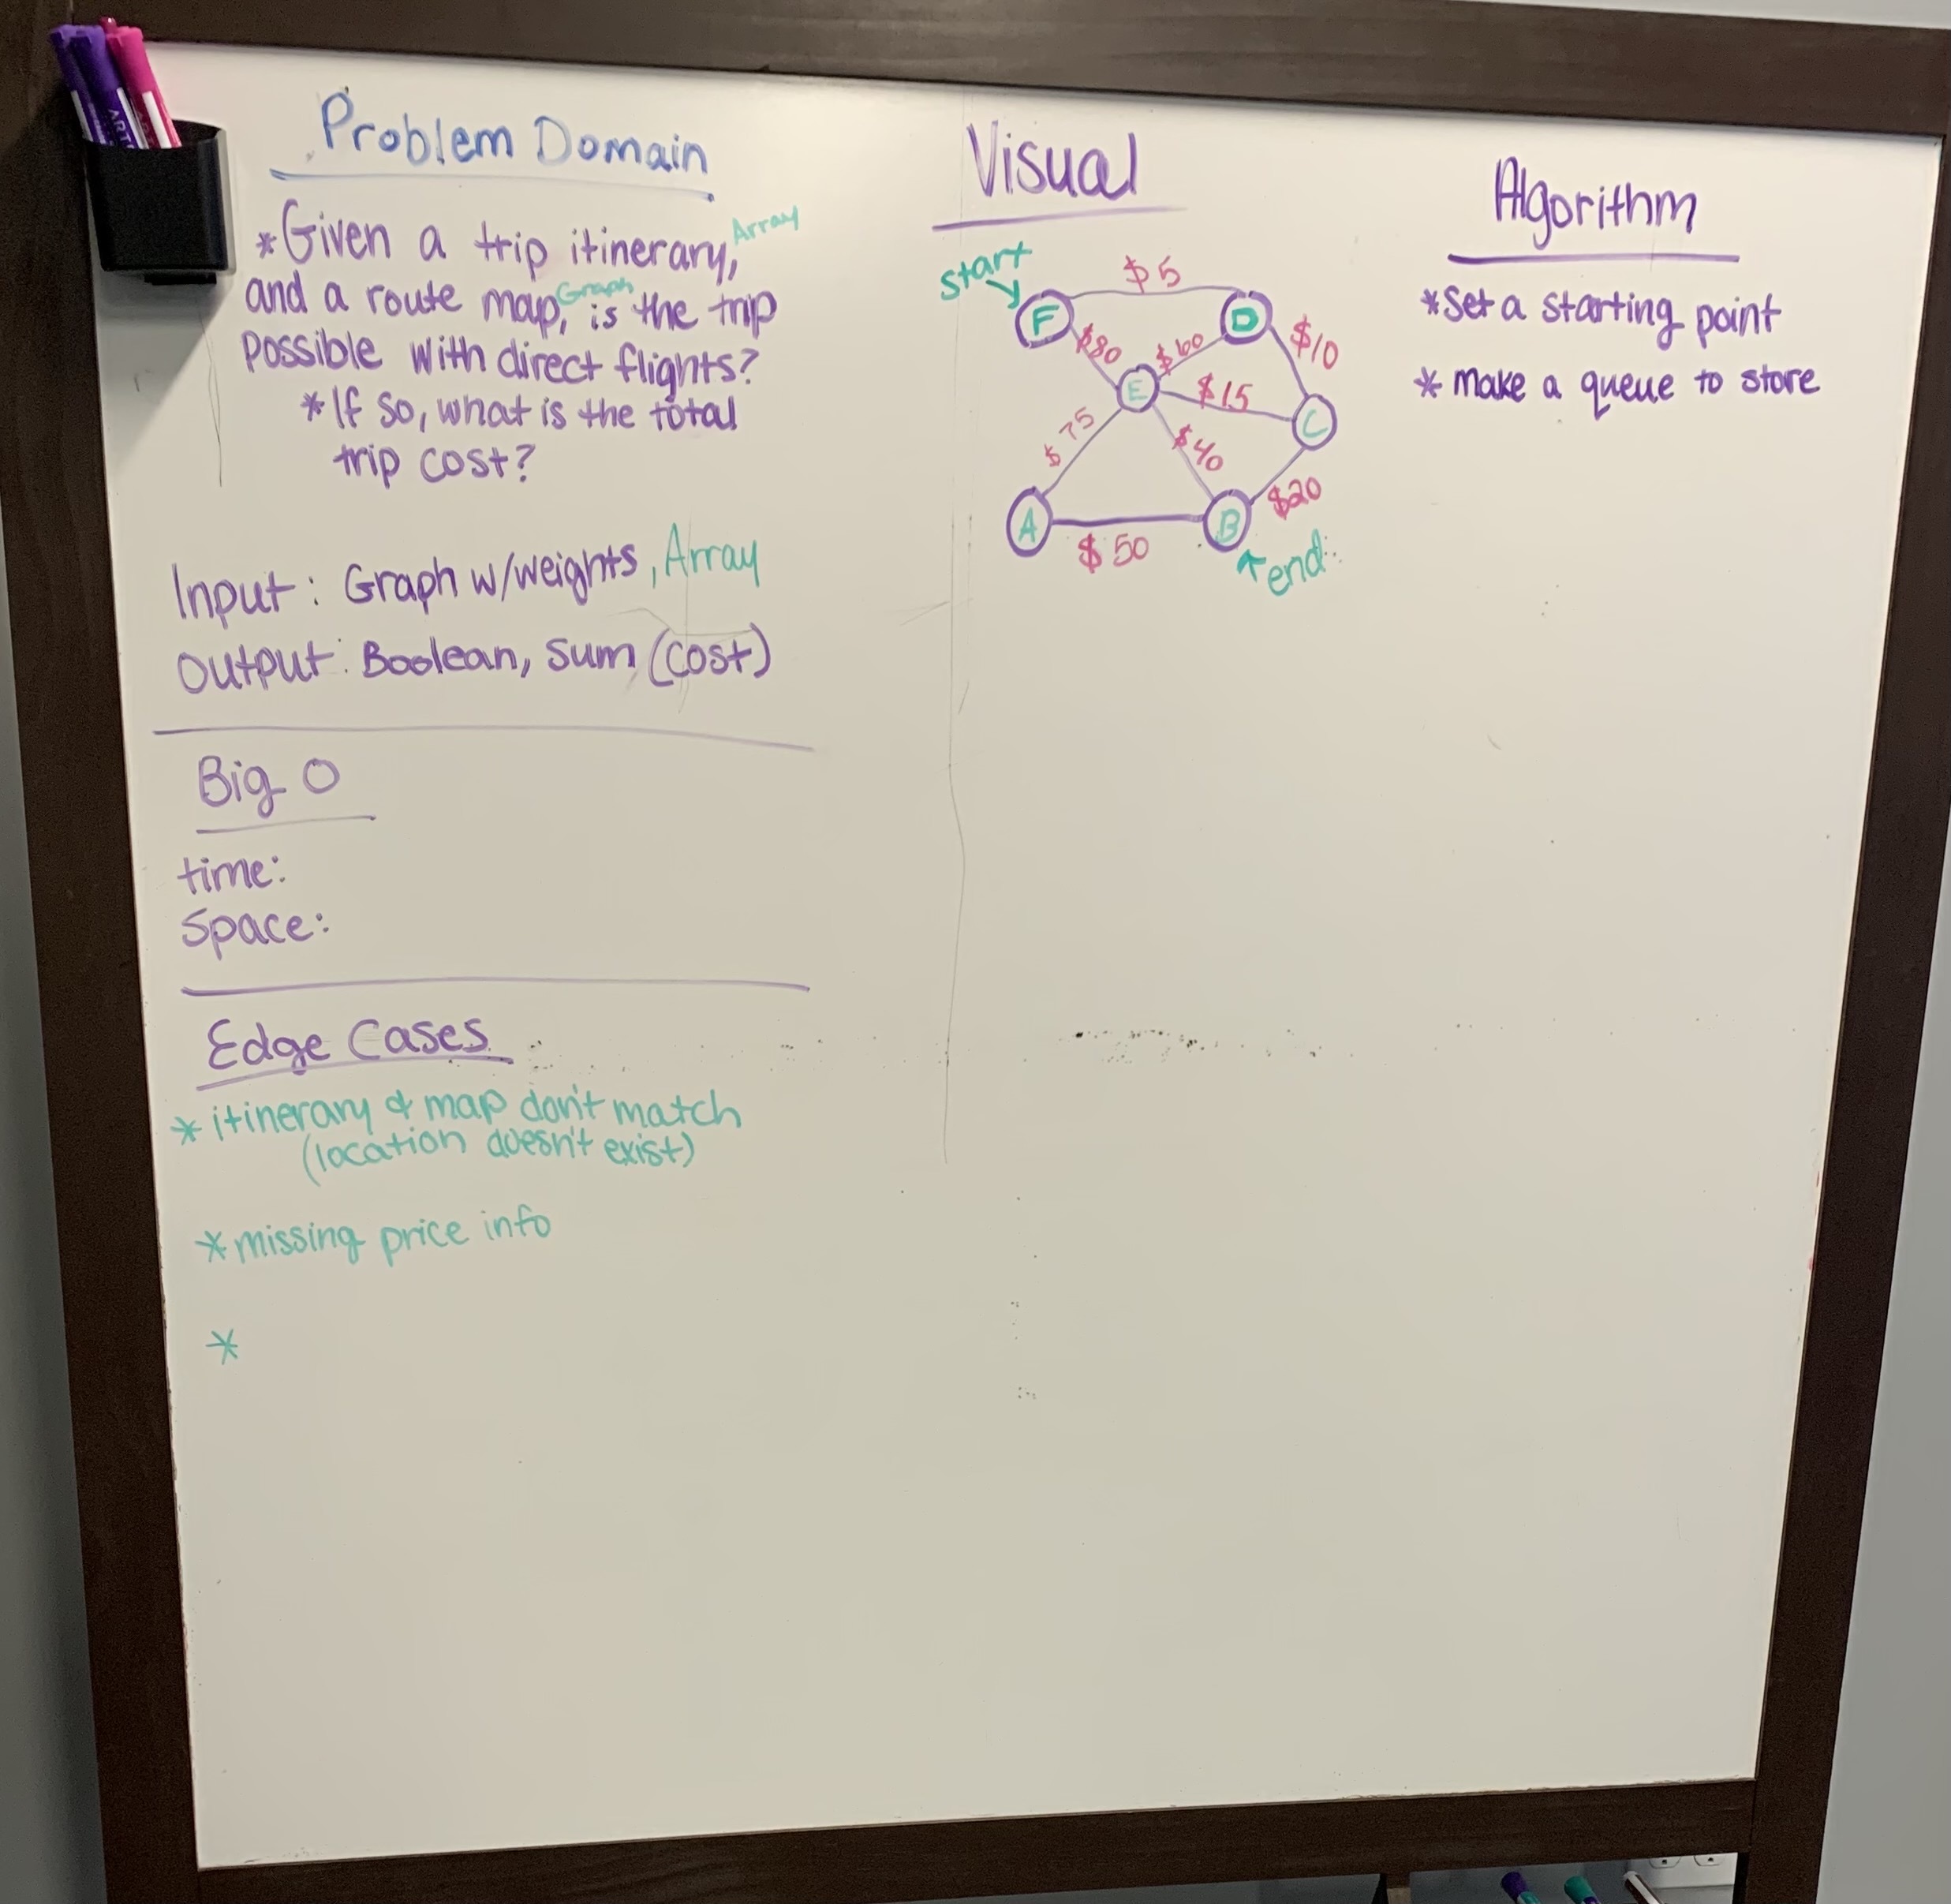 Problem Domain
*Given a trip itinerary, Array
and a route map, Graph is the trip
possible with direct flights?
*If so, what is the total
trip cost?
Input: Graph w/weights, Array
Output: Boolean, sum (cost)
Big O
time:
Space:
Edge Cases
*itinerary & map don't match
(location doesn't exist)
*missing price info
*
Visual
start
$5
F
D
$80
$60
$10
E
$15
C
$75
$40
$20
A
B
$50
end
Algorithm
*Set a starting point
*make a queue to store